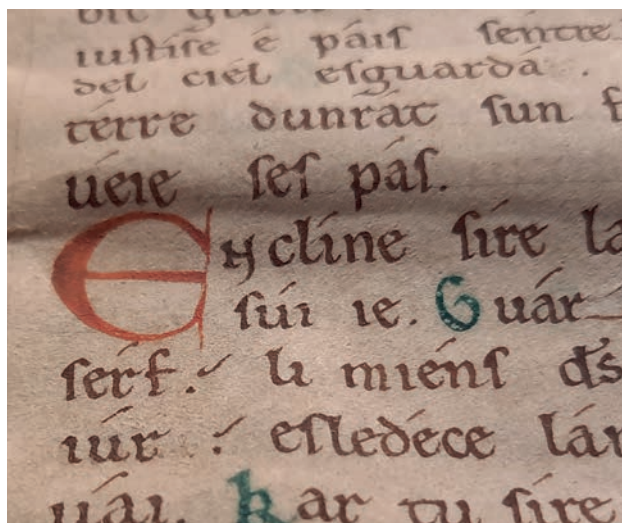 iustise é páis sentre
del ciel esguardá .
térre dunrát sun f
uéie ses pás.
Encline sire la
súi ie. Guár
sérf. li miéns ds
iúr : esledéce lár
uái. kar tu sire